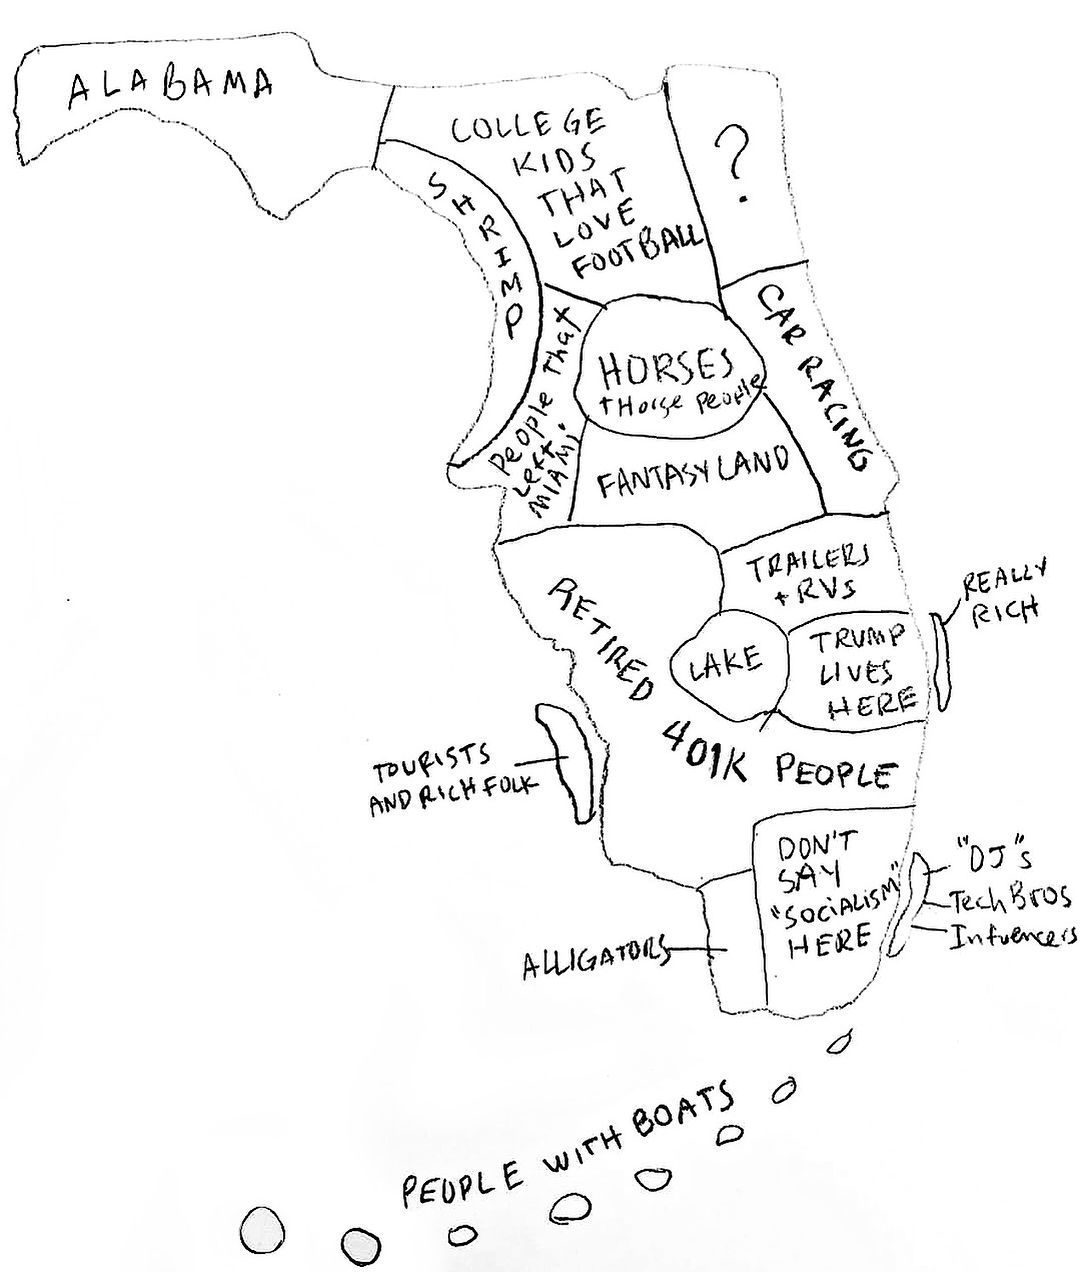 ALABAMA
COLLEGE
KIDS
THAT
LOVE
FOOTBALL
?
SHRIMP
CAR RACING
People That
Left
MIAMI
HORSES
+ Horse People
FANTASYLAND
TRAILERS
+ RVs
REALLY
RICH
RETIRED
401K PEOPLE
LAKE
TRUMP
LIVES
HERE
TOURISTS
AND RICH FOLK
DON'T
SAY
"SOCIALISM"
HERE
"DJ"s
Tech Bros
Influencers
ALLIGATORS
PEOPLE WITH BOATS